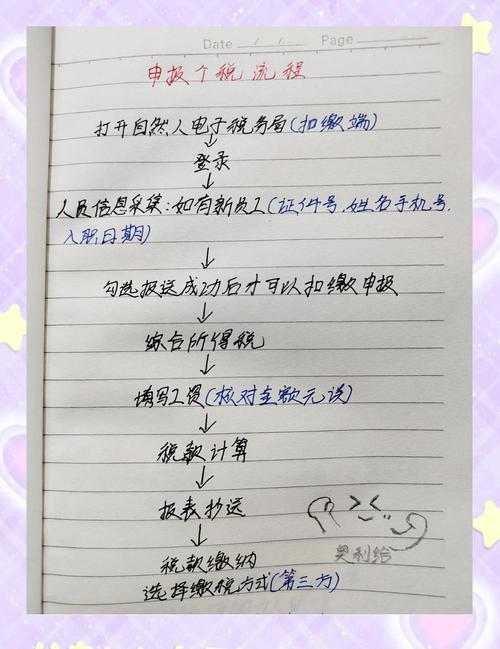 Date / / Page
申报个税流程
打开自然人电子税务局(扣缴端)
↓
登录
↓
人员信息采集:如有新员工(证件号.姓名手机号.
入职日期)
↓
勾选报送成功后才可以扣缴申报
↓
综合所得税
↓
填写工资(核对金额无误)
↓
税款计算
↓
报表抄送
↓
税款缴纳
选择缴税方式(第三方)
奥利给